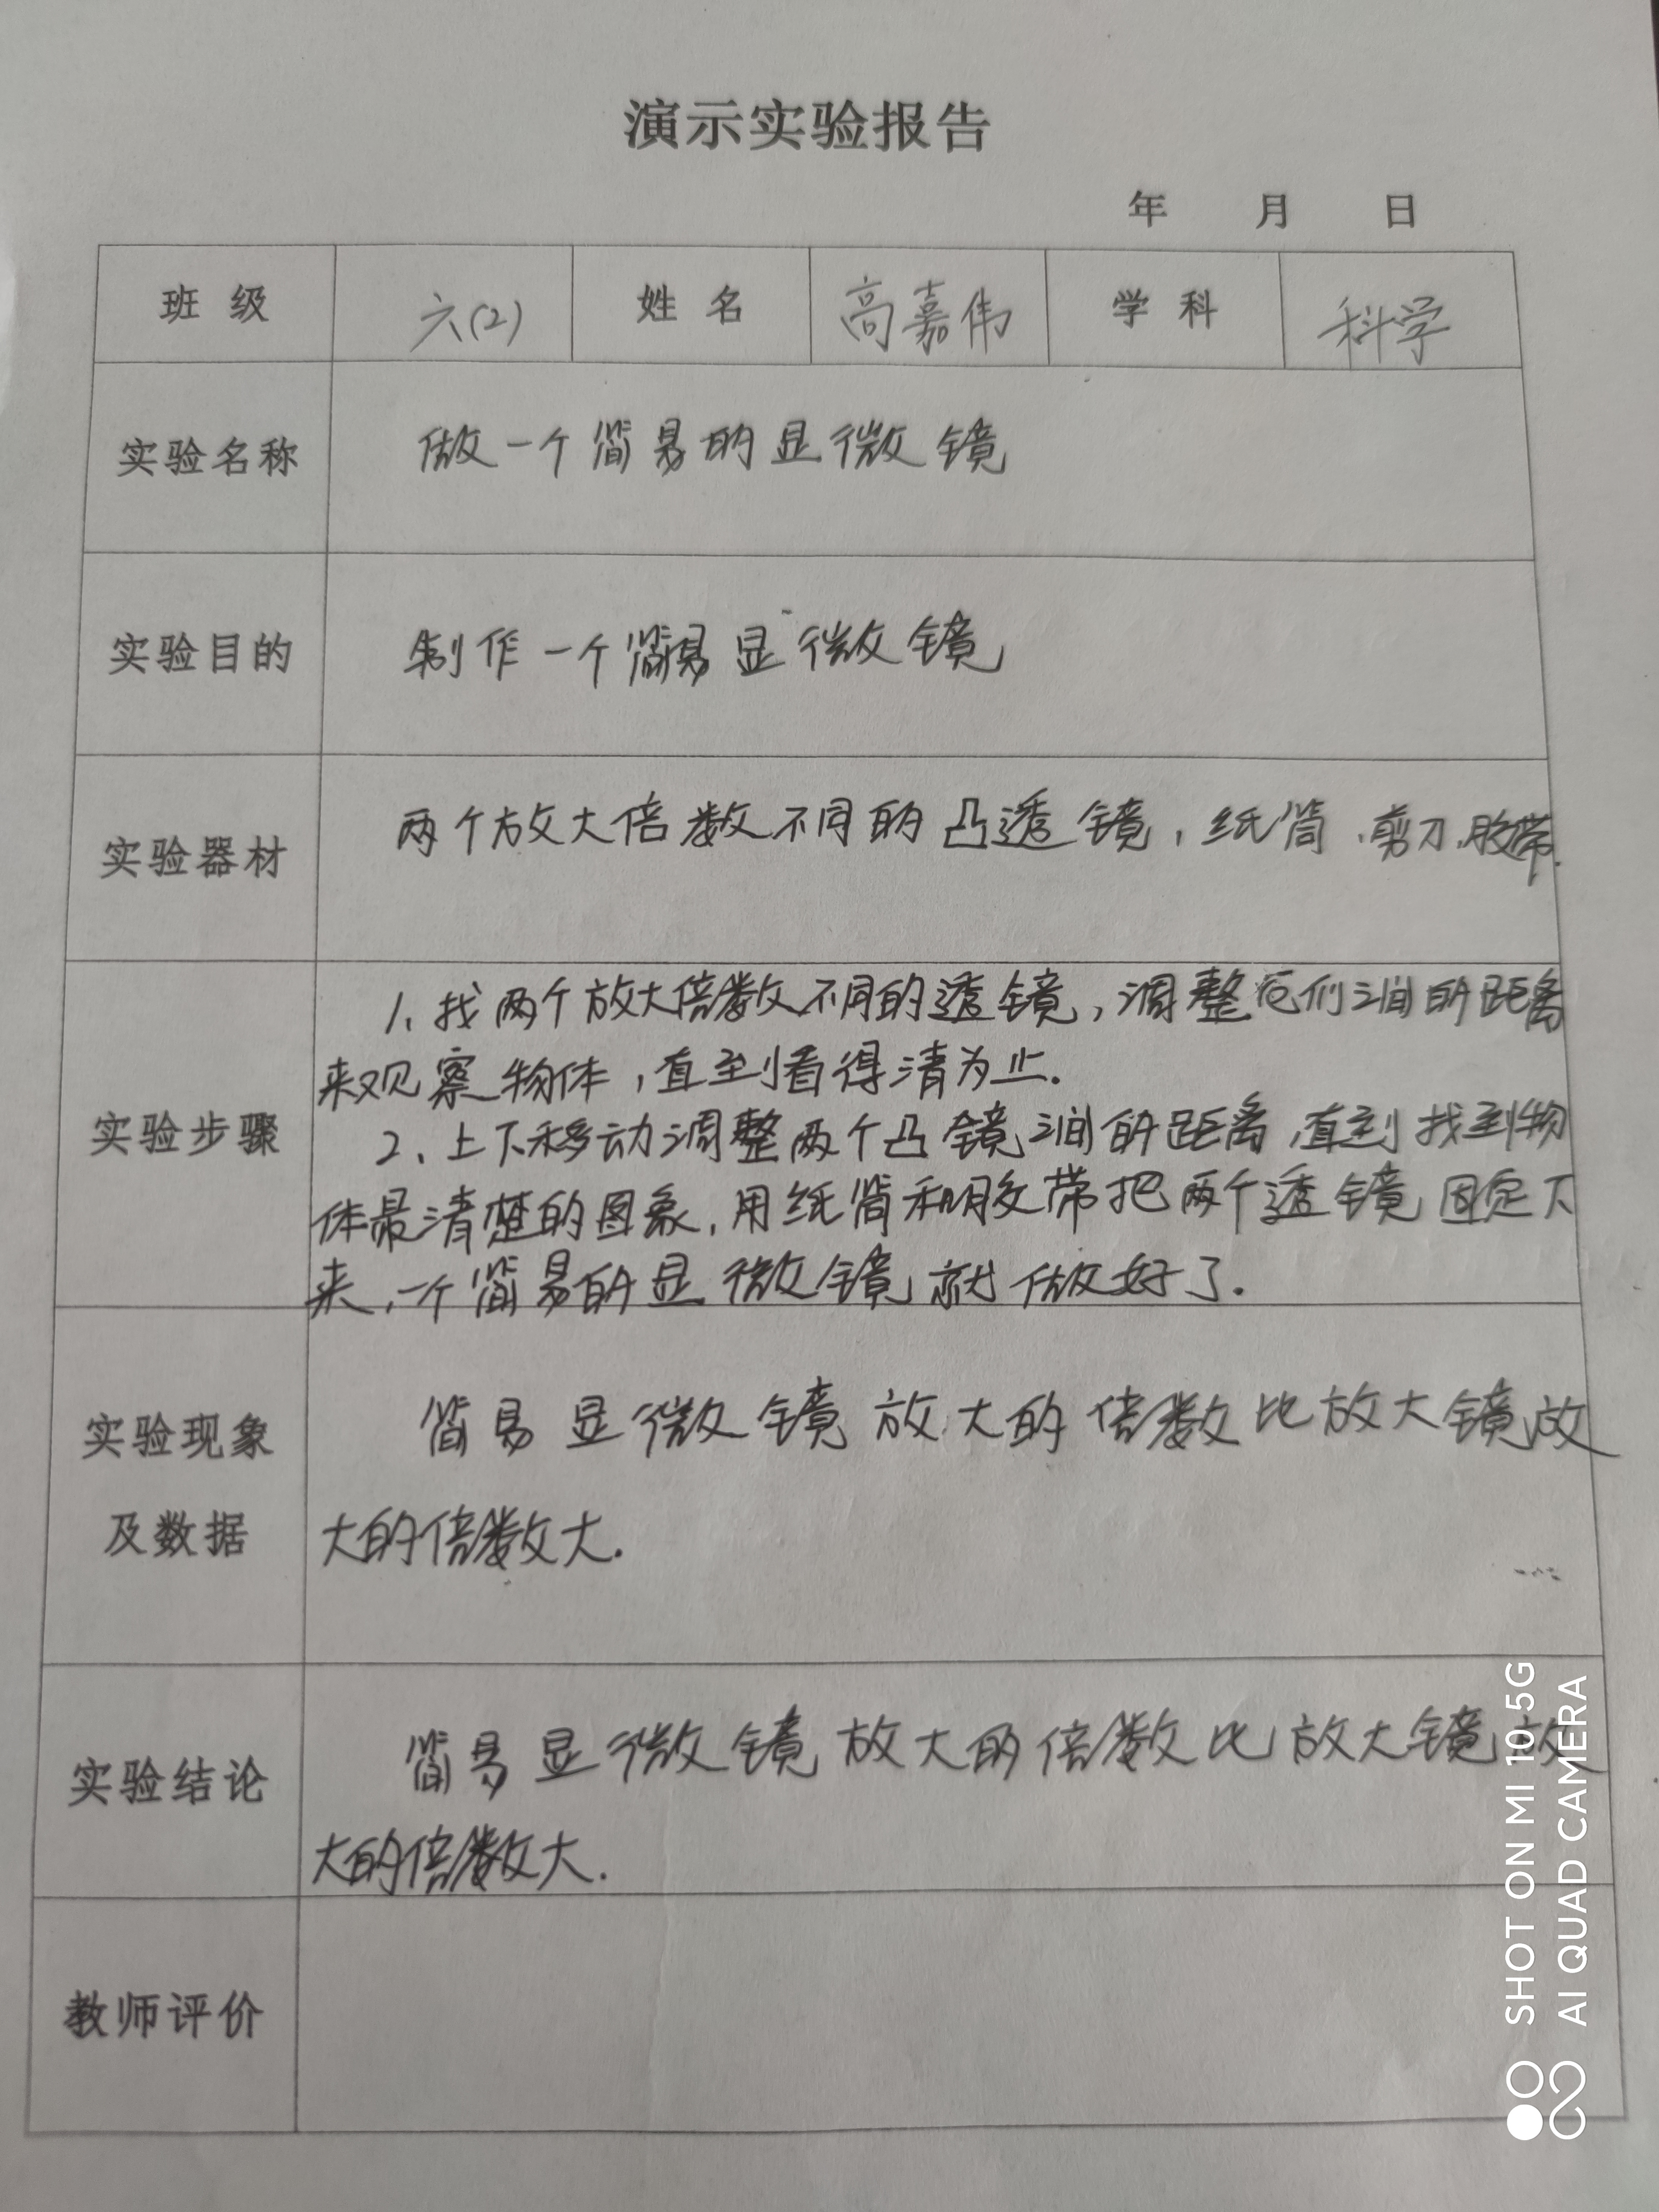 演示实验报告
年 月 日
班级 六(2) 姓名 高嘉伟 学科 科学
实验名称 做一个简易的显微镜
实验目的 制作一个简易显微镜
实验器材 两个放大倍数不同的凸透镜,纸筒,剪刀,胶带.
实验步骤
1、找两个放大倍数不同的透镜,调整它们之间的距离
来观察物体,直到看得清为止.
2、上下移动调整两个凸镜之间的距离,直到找到物
体最清楚的图象,用纸筒和胶带把两个透镜固定下
来,一个简易的显微镜就做好了.
实验现象
及数据
简易显微镜放大的倍数比放大镜放
大的倍数大.
实验结论
简易显微镜放大的倍数比放大镜放
大的倍数大.
教师评价
SHOT ON MI 10 5G
AI QUAD CAMERA